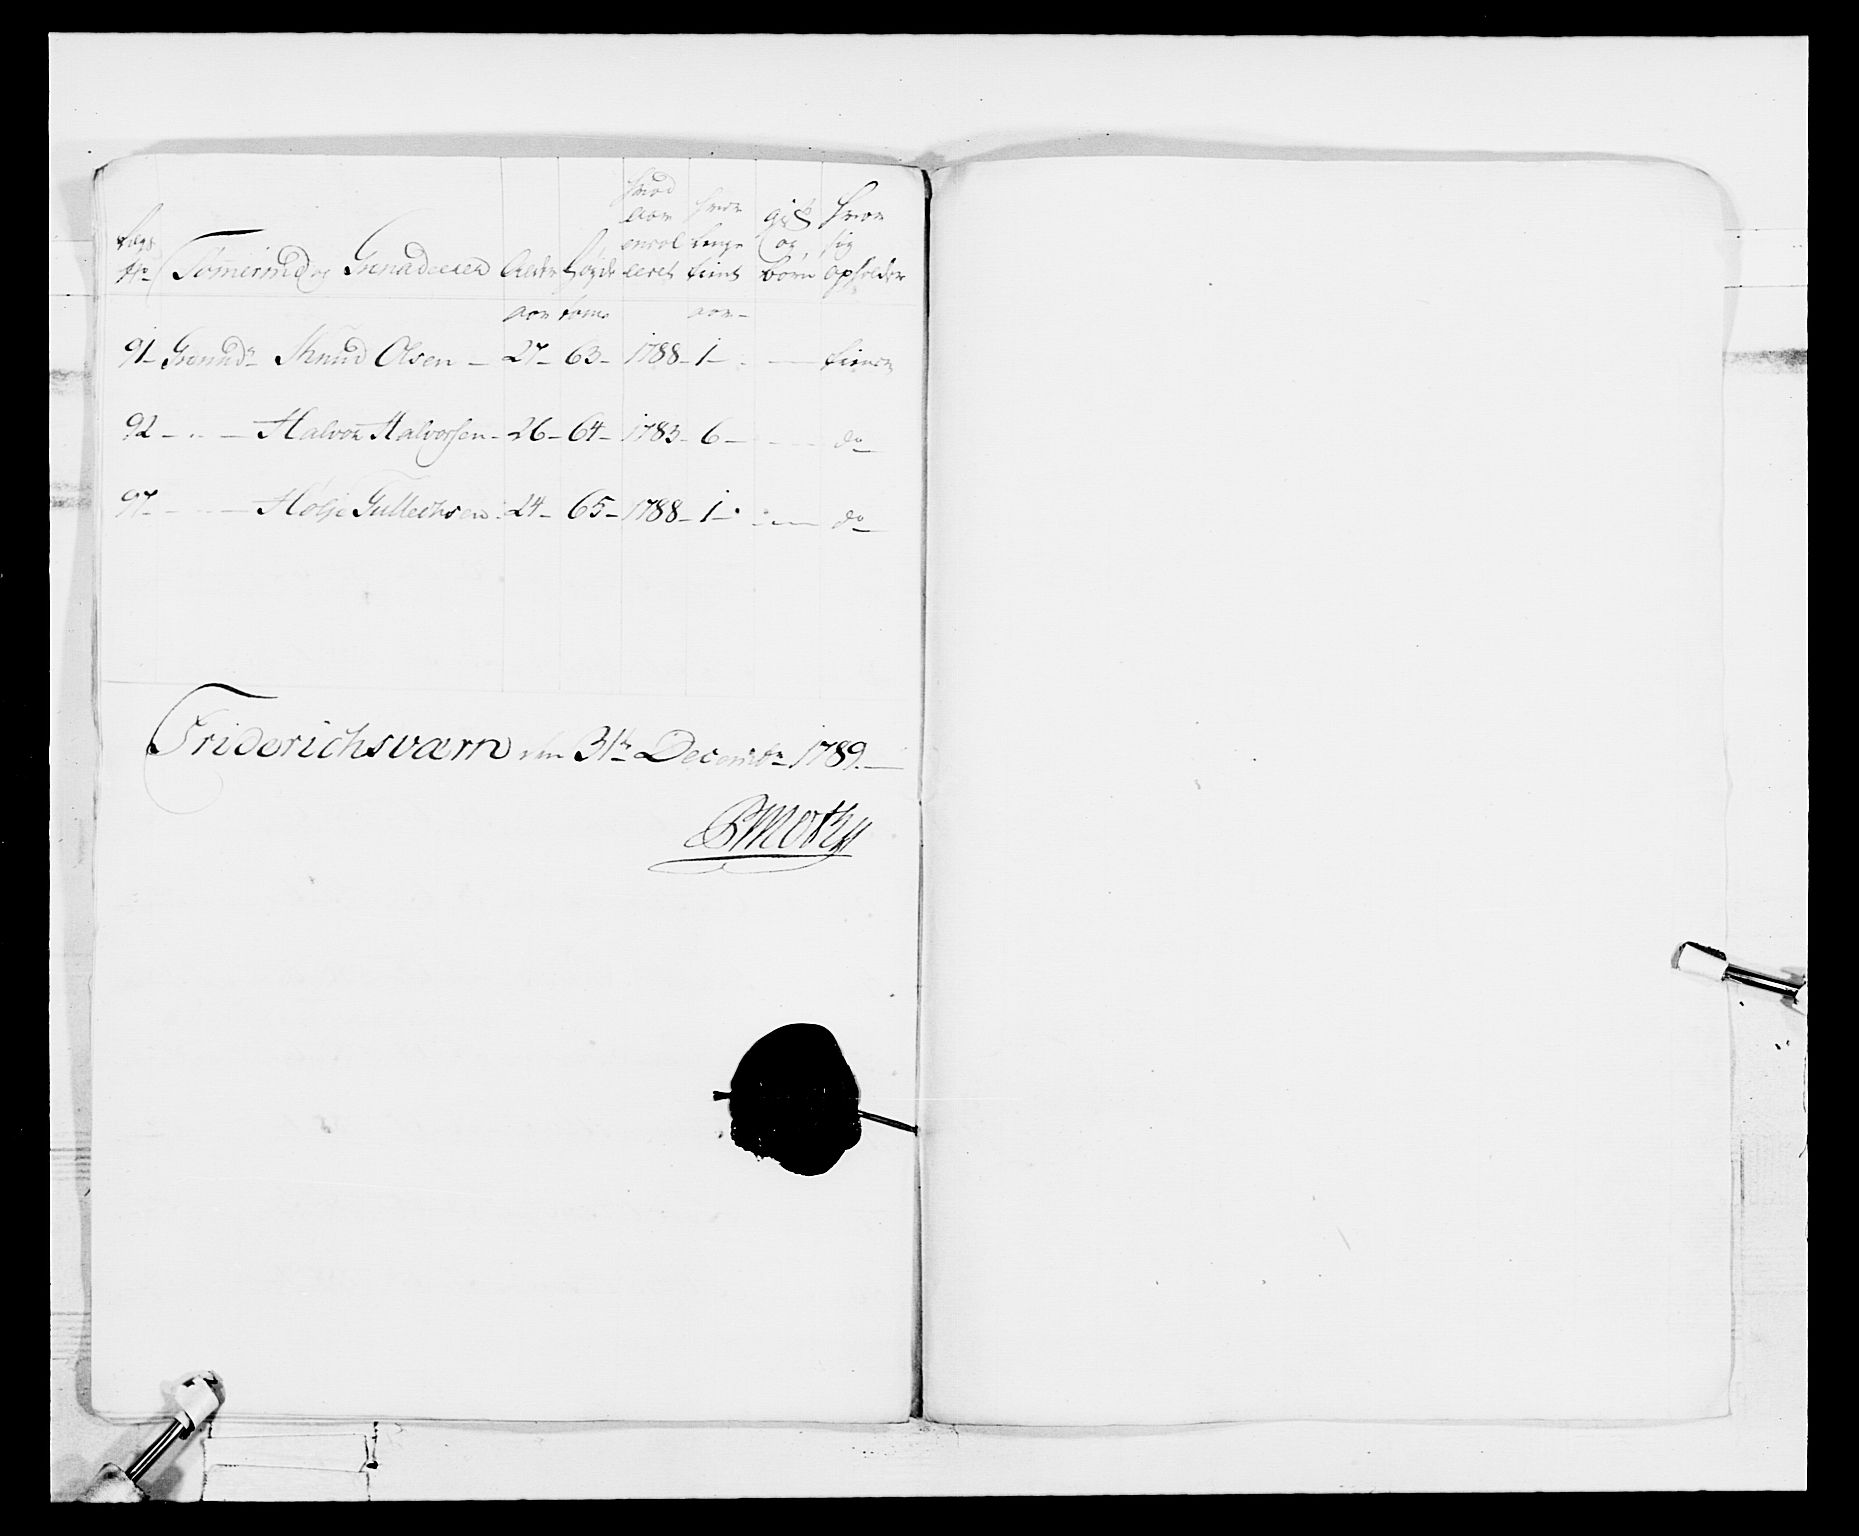 Lægs No Tømermd og Granadeerer Alder Høyde hvad aar enrolleret hvor lenge tient gift og børn hvor sig opholder
aar tom. aar
91 Granadr Knud Olsen 27 63 1788 1 tiener
92 Halvor Halvorsen 26 64 1783 6 do
97 Holje Tullechsen 24 65 1788 1 do
Friderichsværn den 31te Decembr 1789.